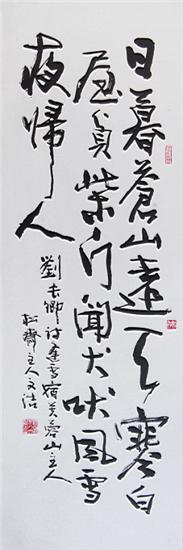 日暮蒼山遠天寒白
屋貧柴門聞犬吠風雪
夜歸人
劉長卿詩逢雪宿芙蓉山主人
松齋主人文洁